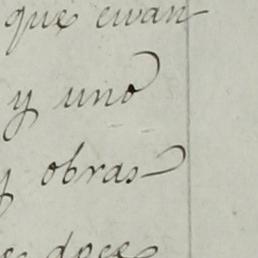 que eran
y uno
y obras
doce